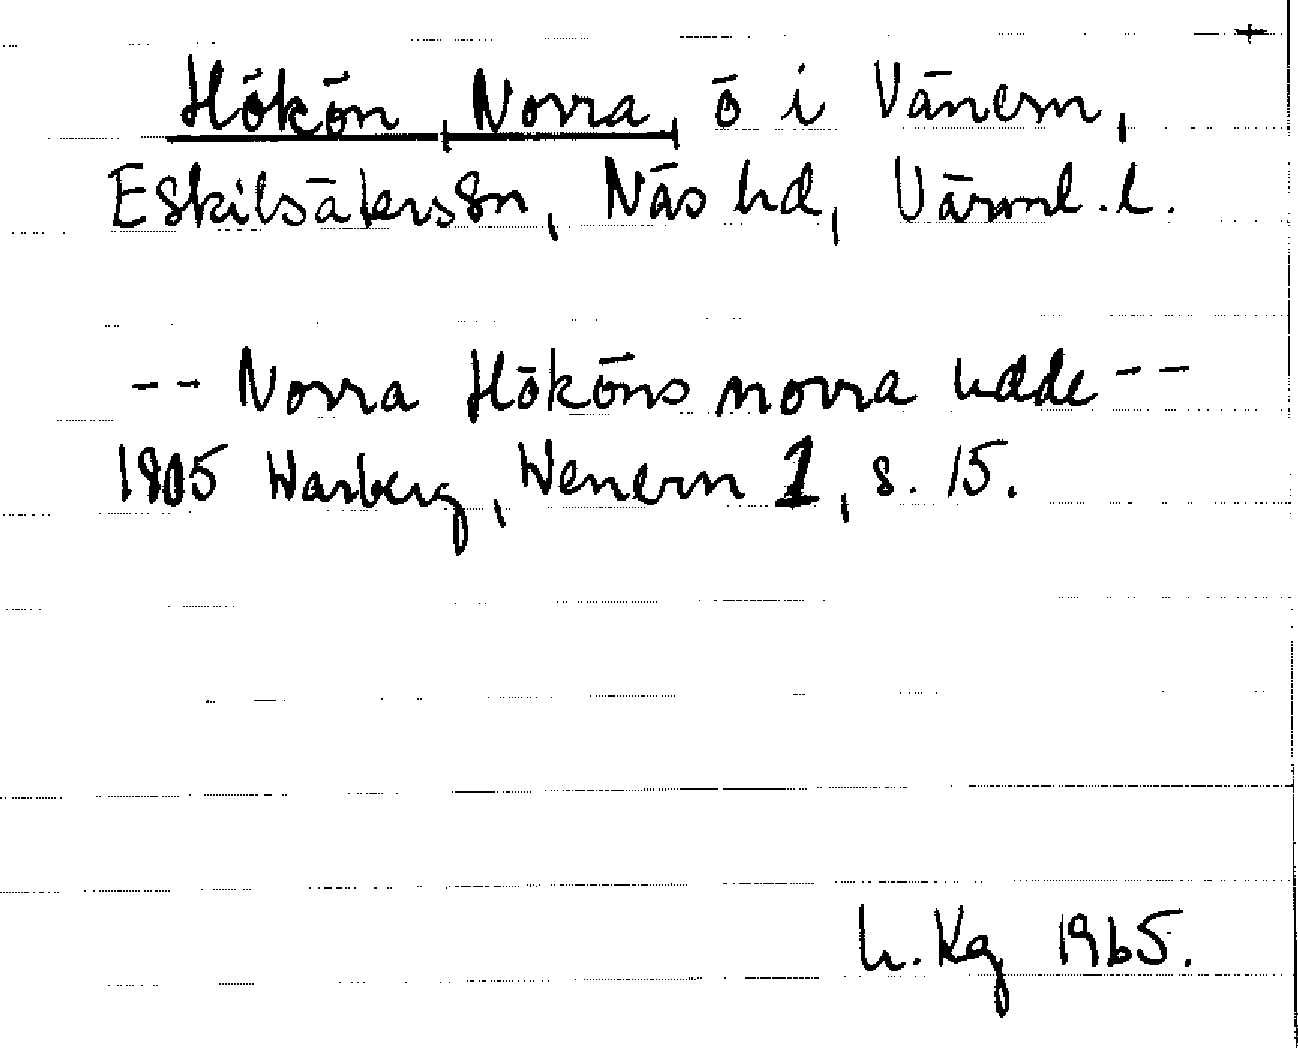 Hökön, Norra, ö i Vänern,
Eskilsäterssn, Näs hd, Värml. l.
-- Norra Hököns norra udde --
1805 Warberg, Wenern 1, s. 15.
h. Kg 1965.